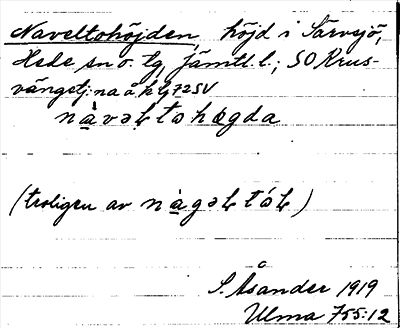 Naveltohöjden, höjd i Särvsjö,
Hede sn o. tg Jämtl. l.; SO Krus-
vänget;
nàvəɫtohøgda
(troligen av nàgəɫtóɫ)
S. Åsander 1919
Ulma 755:12